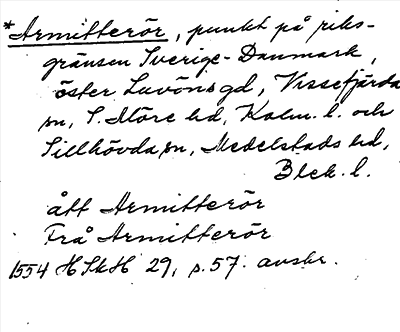 *Armitterör, punkt på riks-
gränsen Sverige-Danmark,
öster Luvönsgd, Vissefjärda
sn, S. Möre hd, Kalm. l. och
Sillhövda sn, Medelstads hd,
Blek. l.
ått Armitterör
Frå Armitterör
1554 HSkH 29, s. 57. avskr.